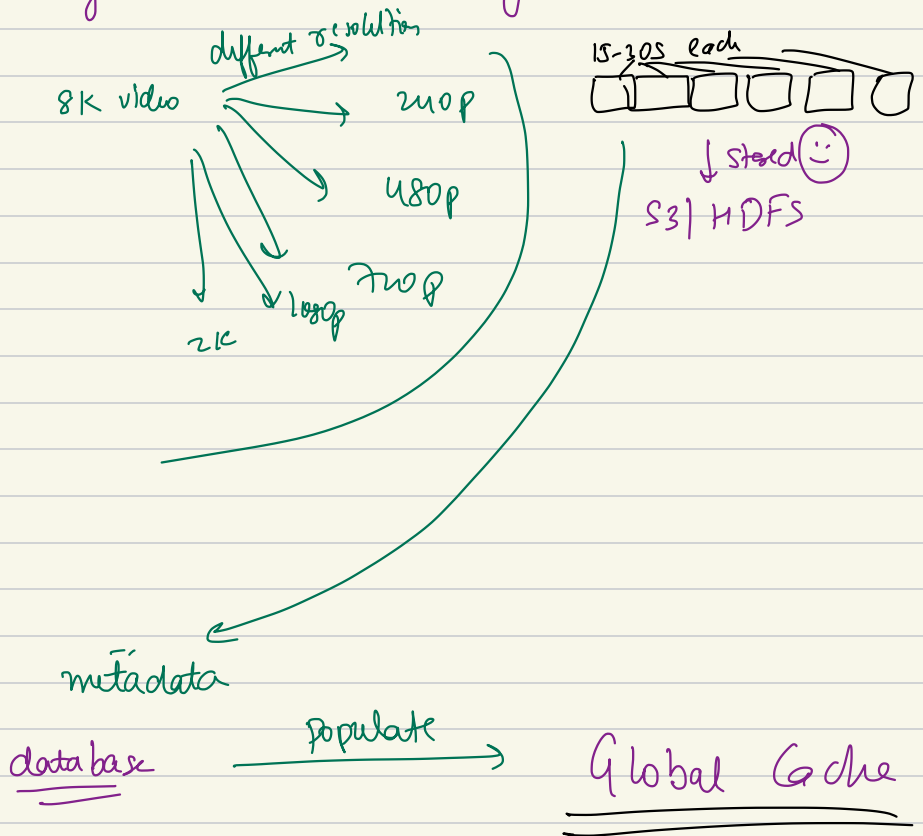 different resolution
8K video
240p
480p
720p
1080p
2K
15-30s each
stored
S3 | HDFS
metadata
populate
database
Global Cache